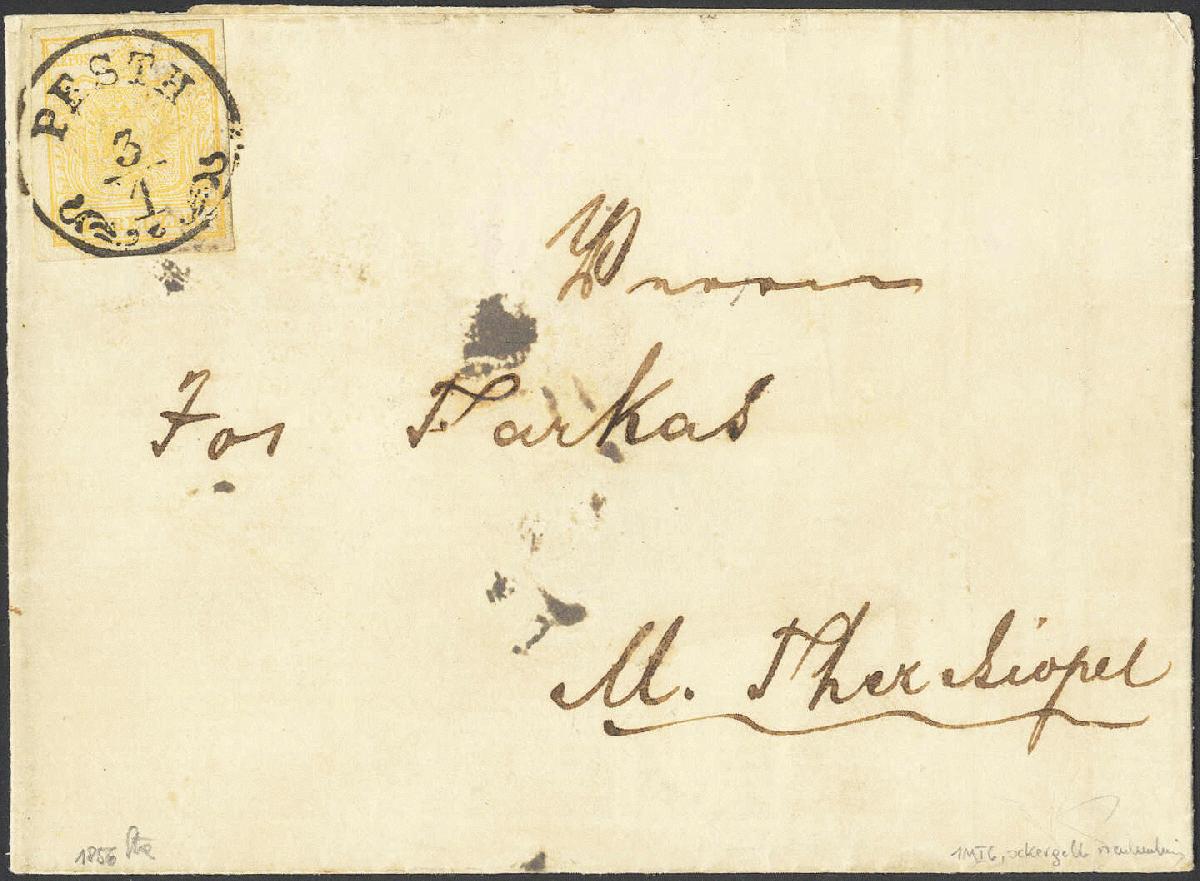 PESTH
3/1
Jos Farkas
M. Theresiopel
1856
1MIb, ockergelb